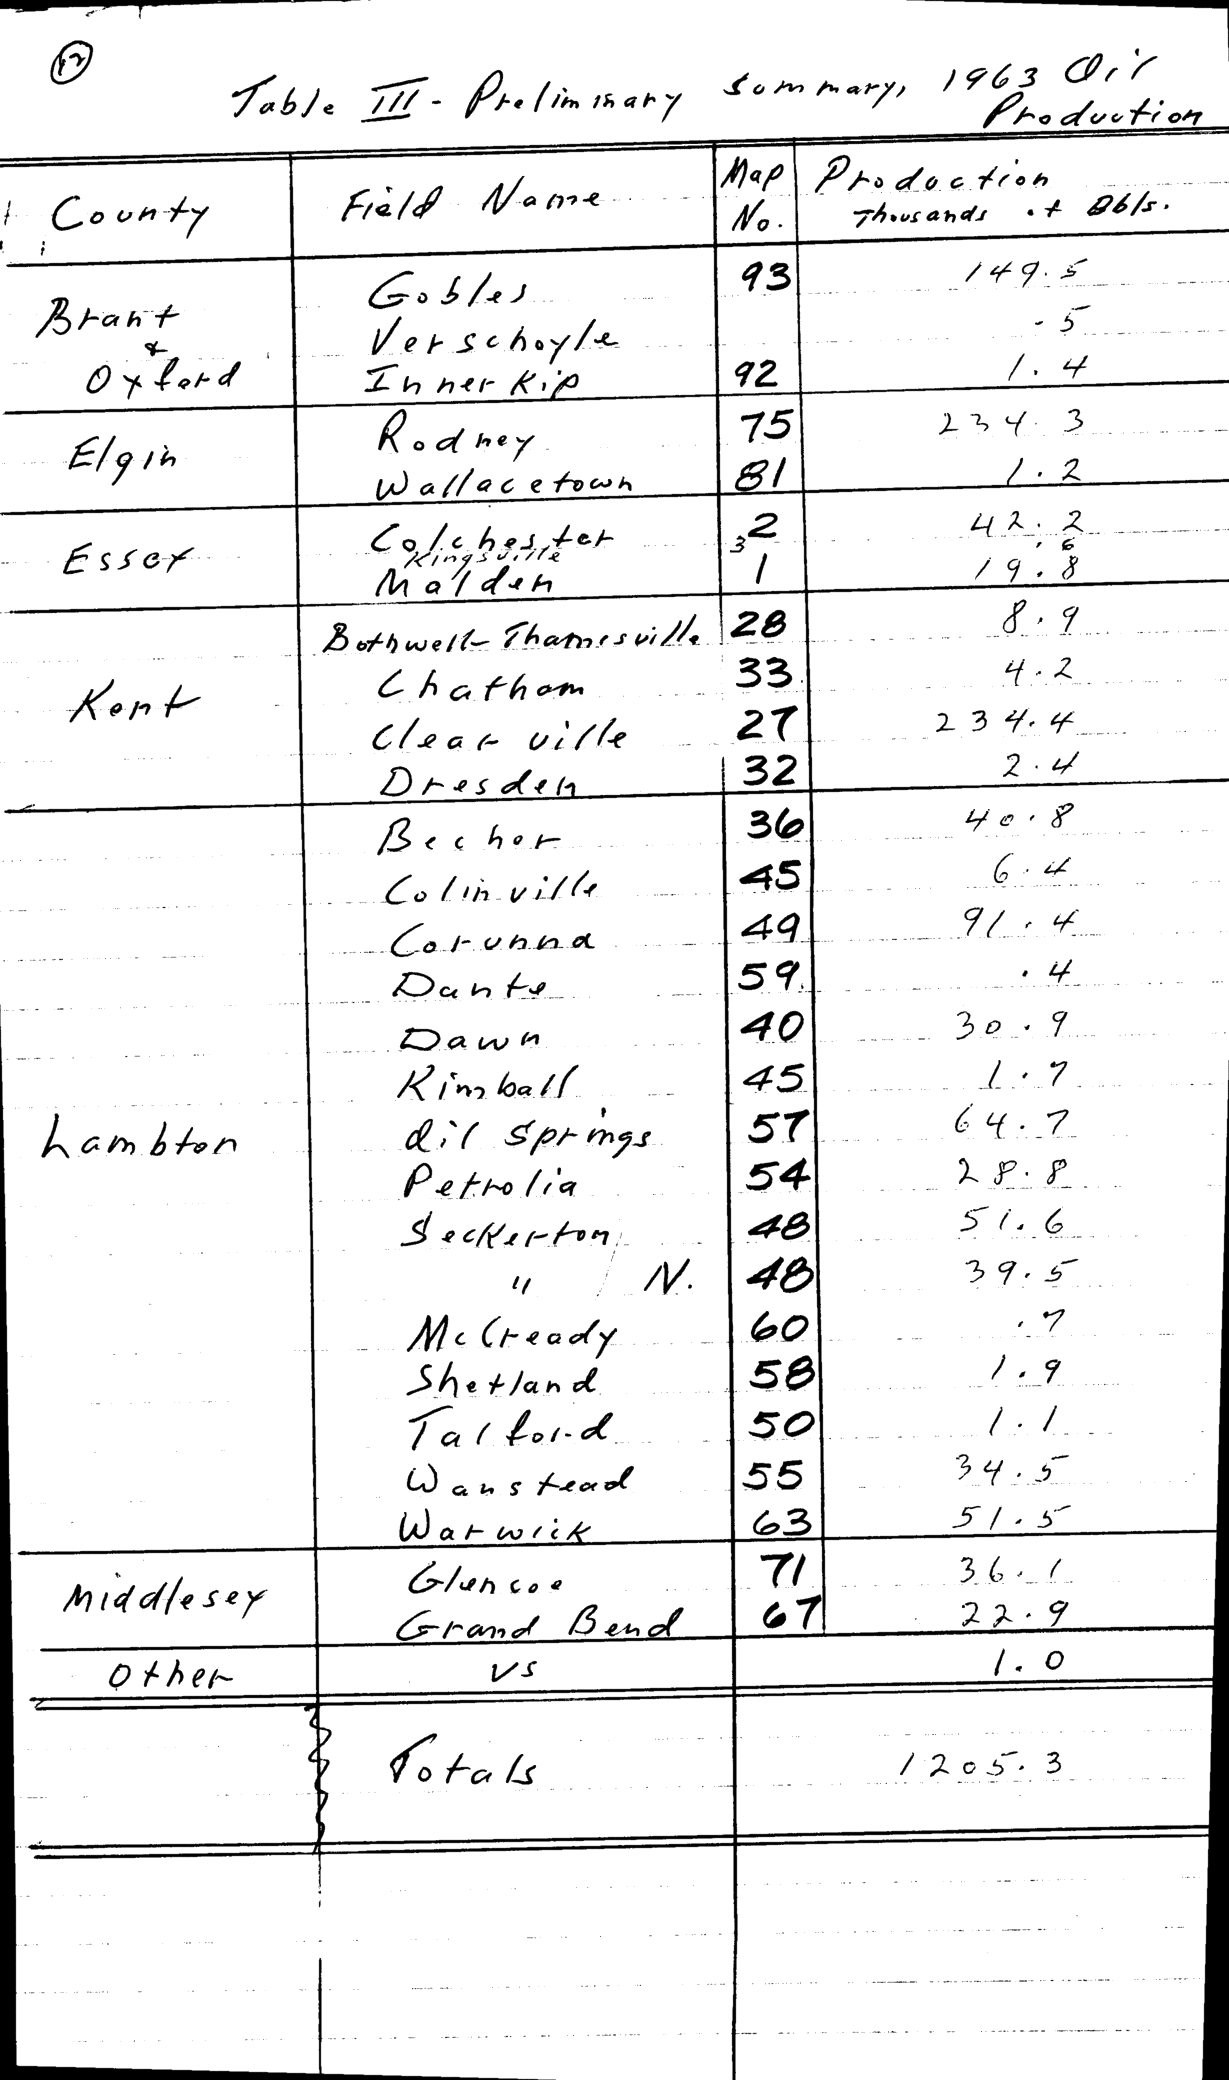 12
Table III - Preliminary Summary, 1963 Oil
Production
County Field Name Map No. Production Thousands of Bbls.
Brant & Oxford Gobles 93 149.5
Verschoyle .5
Innerkip 92 1.4
Elgin Rodney 75 234.3
Wallacetown 81 1.2
Essex Colchester 2 42.2
Kingsville 3 .6
Malden 1 19.8
Kent Bothwell-Thamesville 28 8.9
Chatham 33 4.2
Clearville 27 234.4
Dresden 32 2.4
Lambton Becher 36 40.8
Colinville 45 6.4
Corunna 49 91.4
Dante 59 .4
Dawn 40 30.9
Kimball 45 1.7
Oil Springs 57 64.7
Petrolia 54 28.8
Seckerton 48 51.6
" N. 48 39.5
McCready 60 .7
Shetland 58 1.9
Talford 50 1.1
Wanstead 55 34.5
Warwick 63 51.5
Middlesex Glencoe 71 36.1
Grand Bend 67 22.9
Other VS 1.0
Totals 1205.3